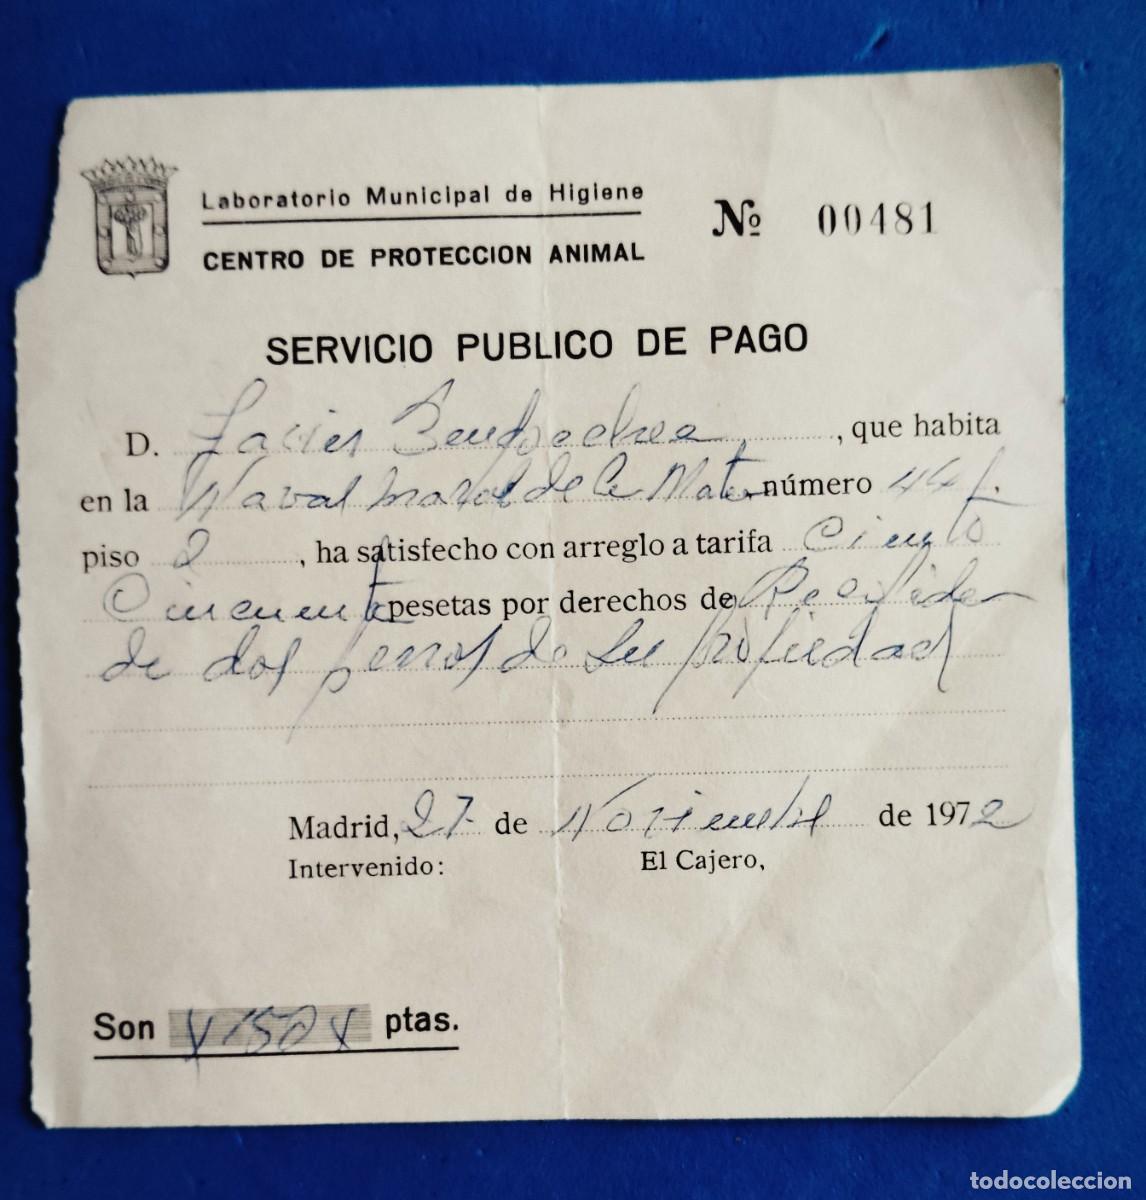 Laboratorio Municipal de Higiene
CENTRO DE PROTECCION ANIMAL
Nº 00481
SERVICIO PUBLICO DE PAGO
D. Javier , que habita
en la Navalmoral de la Mata número 44
piso 2 , ha satisfecho con arreglo a tarifa Ciento
Cincuenta pesetas por derechos de
de dos perros de su propiedad
Madrid, 27 de Noviembre de 1972
Intervenido: El Cajero,
Son X150X ptas.
todocoleccion